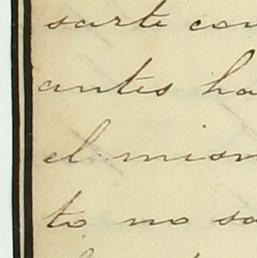 sarte con
antes ha
el mism
to no so